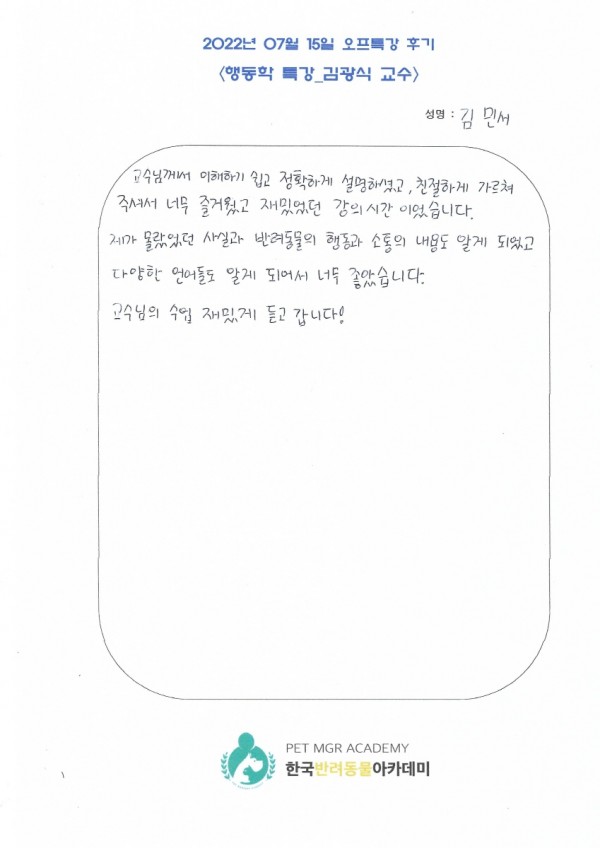 2022년 07월 15일 오프특강 후기
<행동학 특강_김광식 교수>
성명 : 김민서
교수님께서 이해하기 쉽고 정확하게 설명하셨고, 친절하게 가르쳐
주셔서 너무 즐거웠고 재밌었던 강의시간 이었습니다.
제가 몰랐었던 사실과 반려동물의 행동과 소통의 내용도 알게 되었고
다양한 언어들도 알게 되어서 너무 좋았습니다.
교수님의 수업 재밌게 듣고 갑니다!
PET MGR ACADEMY
한국반려동물아카데미